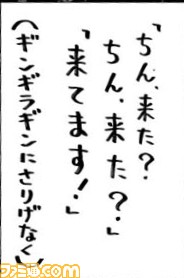 「ちん、来た?
ちん、来た?」
「来てます!」
(ギンギラギンにさりげなく)
ファミ通.com